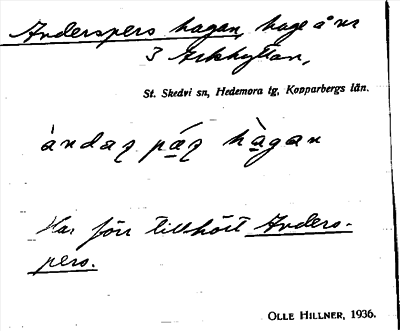 Anderspers hagan, hage å nr
3 Arkhyttan,
St. Skedvi sn, Hedemora tg, Kopparbergs län.
àndaʂ páʂ hàgan
Har förr tillhört Anders-
pers.
OLLE HILLNER, 1936.